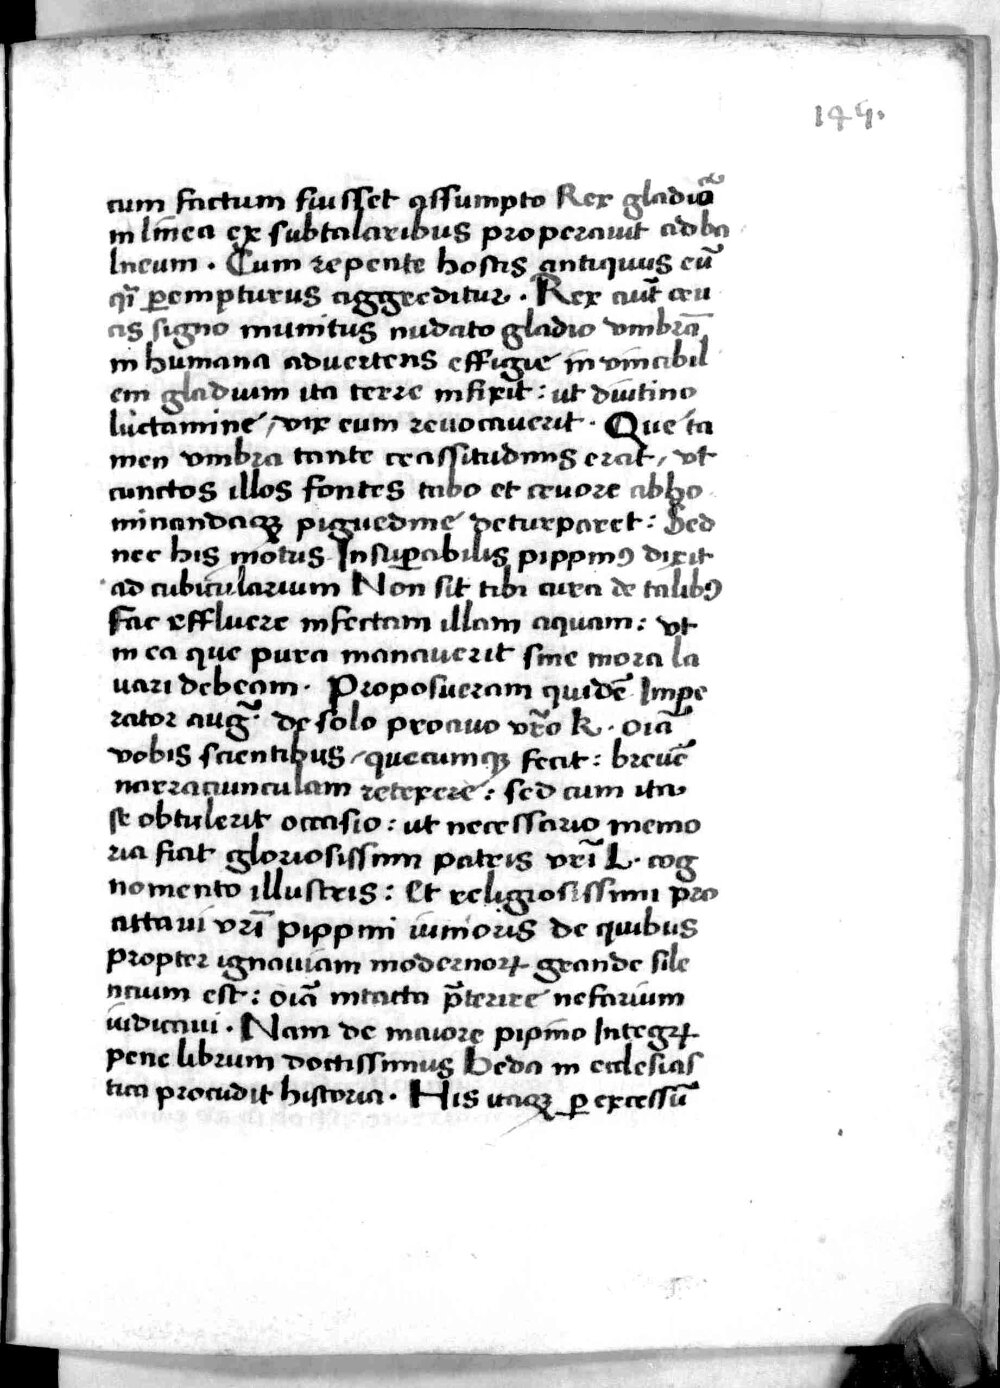 145.
cum factum fuisset assumpto Rex gladiū
in linea ex subtalaribus properauit ad ba
lneum . Cum repente hostis antiquus eū
q̄i ꝑempturus aggreditur . Rex aut̄ cru
cis signo munitus nudato gladio vmbrā
in humana aduertens effigie in vincibil
em gladium ita terre infixit : ut diutino
luctamine / vix eum reuocauerit . Que ta
men vmbra tante crassitudinis erat / vt
cunctos illos fontes tabo et cruore abho
minandaqꝫ piguedine deturparet : Sed
nec his motus Insuꝑabilis pippinꝰ dixit
ad cubicularium Non sit tibi cura de talibꝰ
Fac effluere infectam illam aquam : vt
in ea que pura manauerit sine mora la
uari debeam . Proposueram quidē Impe
rator auḡ . de solo proauo vr̄o k . oīa
vobis scientibus / quecumqꝫ fecit : breuē
narraciunculam retexere : sed cum ita
se obtulerit occasio : ut necessario memo
ria fiat gloriosissimi patris vr̄i L . cog
nomento illustris : Et religiosissimi pro
attaui vr̄i pippini iunioris de quibus
propter ignauiam modernoꝝ grande sile
ntium est : oīa intacta p̄terire nefarium
iudicaui . Nam de maiore pipino Integꝝ
pene librum doctissimus beda in ecclesias
tica procudit historia . His itaqꝫ ꝑ excessū